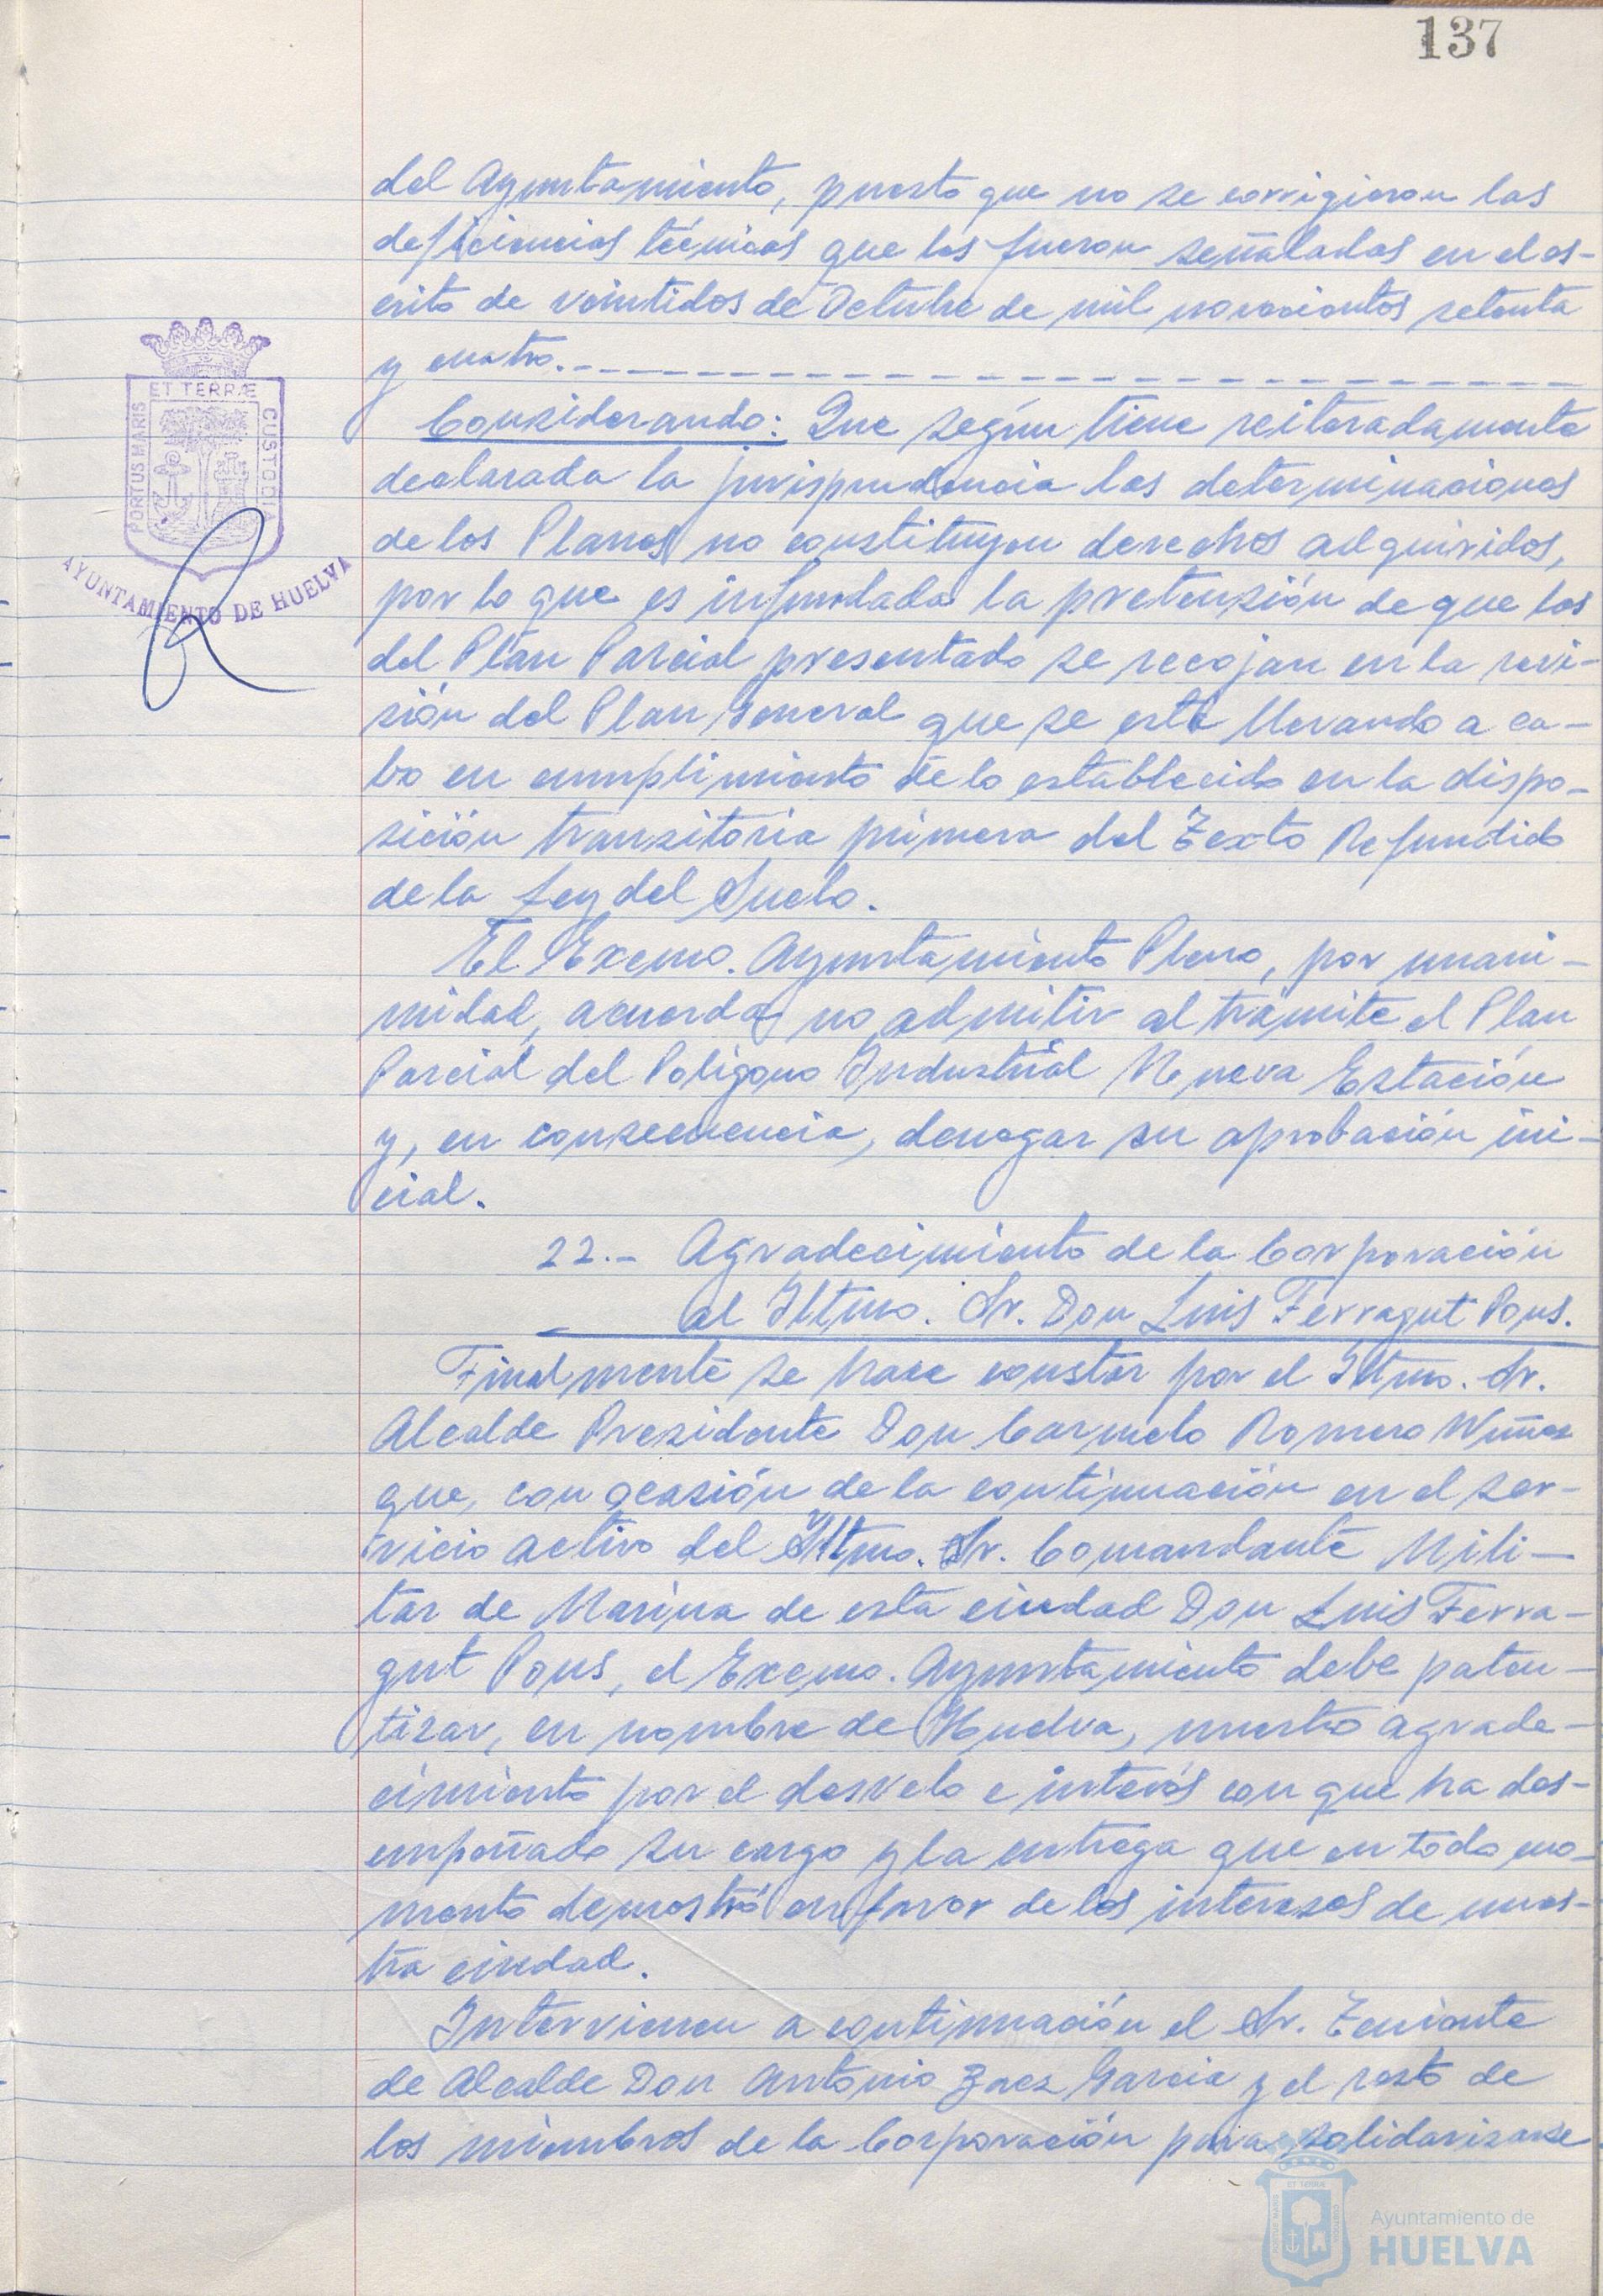 137
del Ayuntamiento, puesto que no se corrigieron las
deficiencias técnicas que les fueron señaladas en el es-
crito de veintidos de Octubre de mil novecientos setenta
y cuatro.
Considerando: Que según tiene reiteradamente
declarada la jurisprudencia las determinaciones
de los Planes no constituyen derechos adquiridos,
por lo que es infundada la pretensión de que las
del Plan Parcial presentado se recojan en la revi-
sión del Plan General que se está llevando a ca-
bo en cumplimiento de lo establecido en la dispo-
sición transitoria primera del Texto Refundido
de la Ley del Suelo.
El Excmo. Ayuntamiento Pleno, por unani-
midad, acuerda no admitir al trámite el Plan
Parcial del Polígono Industrial Nueva Estación
y, en consecuencia, denegar su aprobación ini-
cial.
22.- Agradecimiento de la Corporación
al Iltmo. Sr. Don Luis Ferragut Pons.
Finalmente se hace constar por el Iltmo. Sr.
Alcalde Presidente Don Carmelo Romero Núñez
que, con ocasión de la continuación en el ser-
vicio activo del Iltmo. Sr. Comandante Mili-
tar de Marina de esta ciudad Don Luis Ferra-
gut Pons, el Excmo. Ayuntamiento debe paten-
tizar, en nombre de Huelva, nuestro agrade-
cimiento por el desvelo e interés con que ha des-
empeñado su cargo y la entrega que en todo mo-
mento demostró en favor de los intereses de nues-
tra ciudad.
Intervienen a continuación el Sr. Teniente
de Alcalde Don Antonio Baez Garcia y el resto de
los miembros de la Corporación para solidarizarse
PORTUS MARIS
ET TERRÆ
CUSTODIA
AYUNTAMIENTO DE HUELVA
Ayuntamiento de
HUELVA